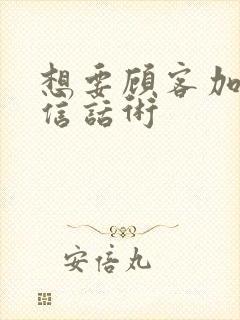 想要顧客加
信話術
安倍丸